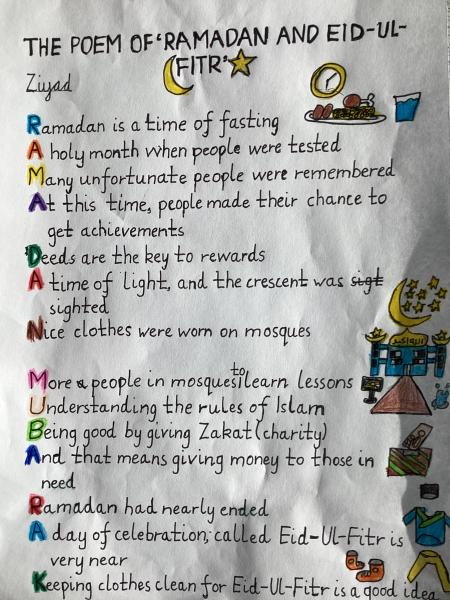 THE POEM OF 'RAMADAN AND EID-UL-
FITR'
Ziyad
Ramadan is a time of fasting
A holy month when people were tested
Many unfortunate people were remembered
At this time, people made their chance to
get achievements
Deeds are the key to rewards
A time of light, and the crescent was sigt
sighted
Nice clothes were worn on mosques
More people in mosques to learn lessons
Understanding the rules of Islam
Being good by giving Zakat (charity)
And that means giving money to those in
need
Ramadan had nearly ended
A day of celebration, called Eid-Ul-Fitr is
very near
Keeping clothes clean for Eid-Ul-Fitr is a good idea